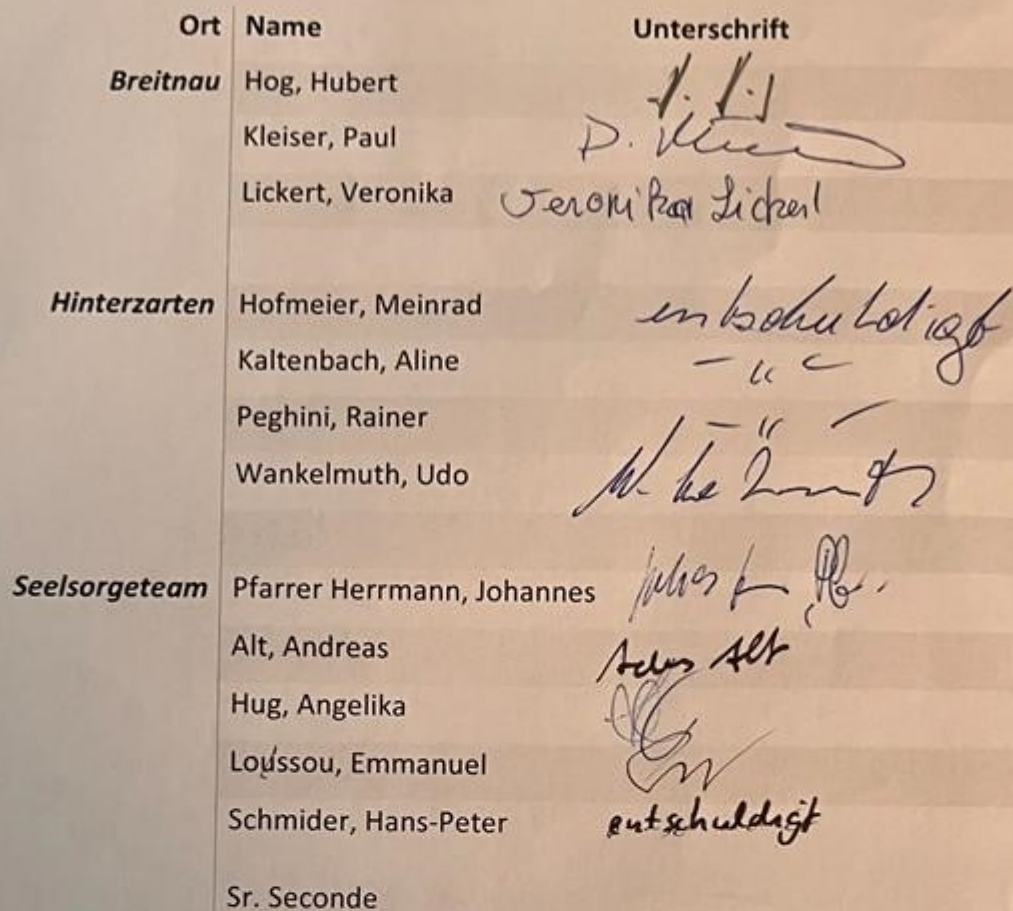 Ort Name Unterschrift
Breitnau Hog, Hubert
Kleiser, Paul P.
Lickert, Veronika Veronika Lickert
Hinterzarten Hofmeier, Meinrad entschuldigt
Kaltenbach, Aline - " -
Peghini, Rainer - " -
Wankelmuth, Udo
Seelsorgeteam Pfarrer Herrmann, Johannes
Alt, Andreas Alt
Hug, Angelika
Loussou, Emmanuel
Schmider, Hans-Peter entschuldigt
Sr. Seconde